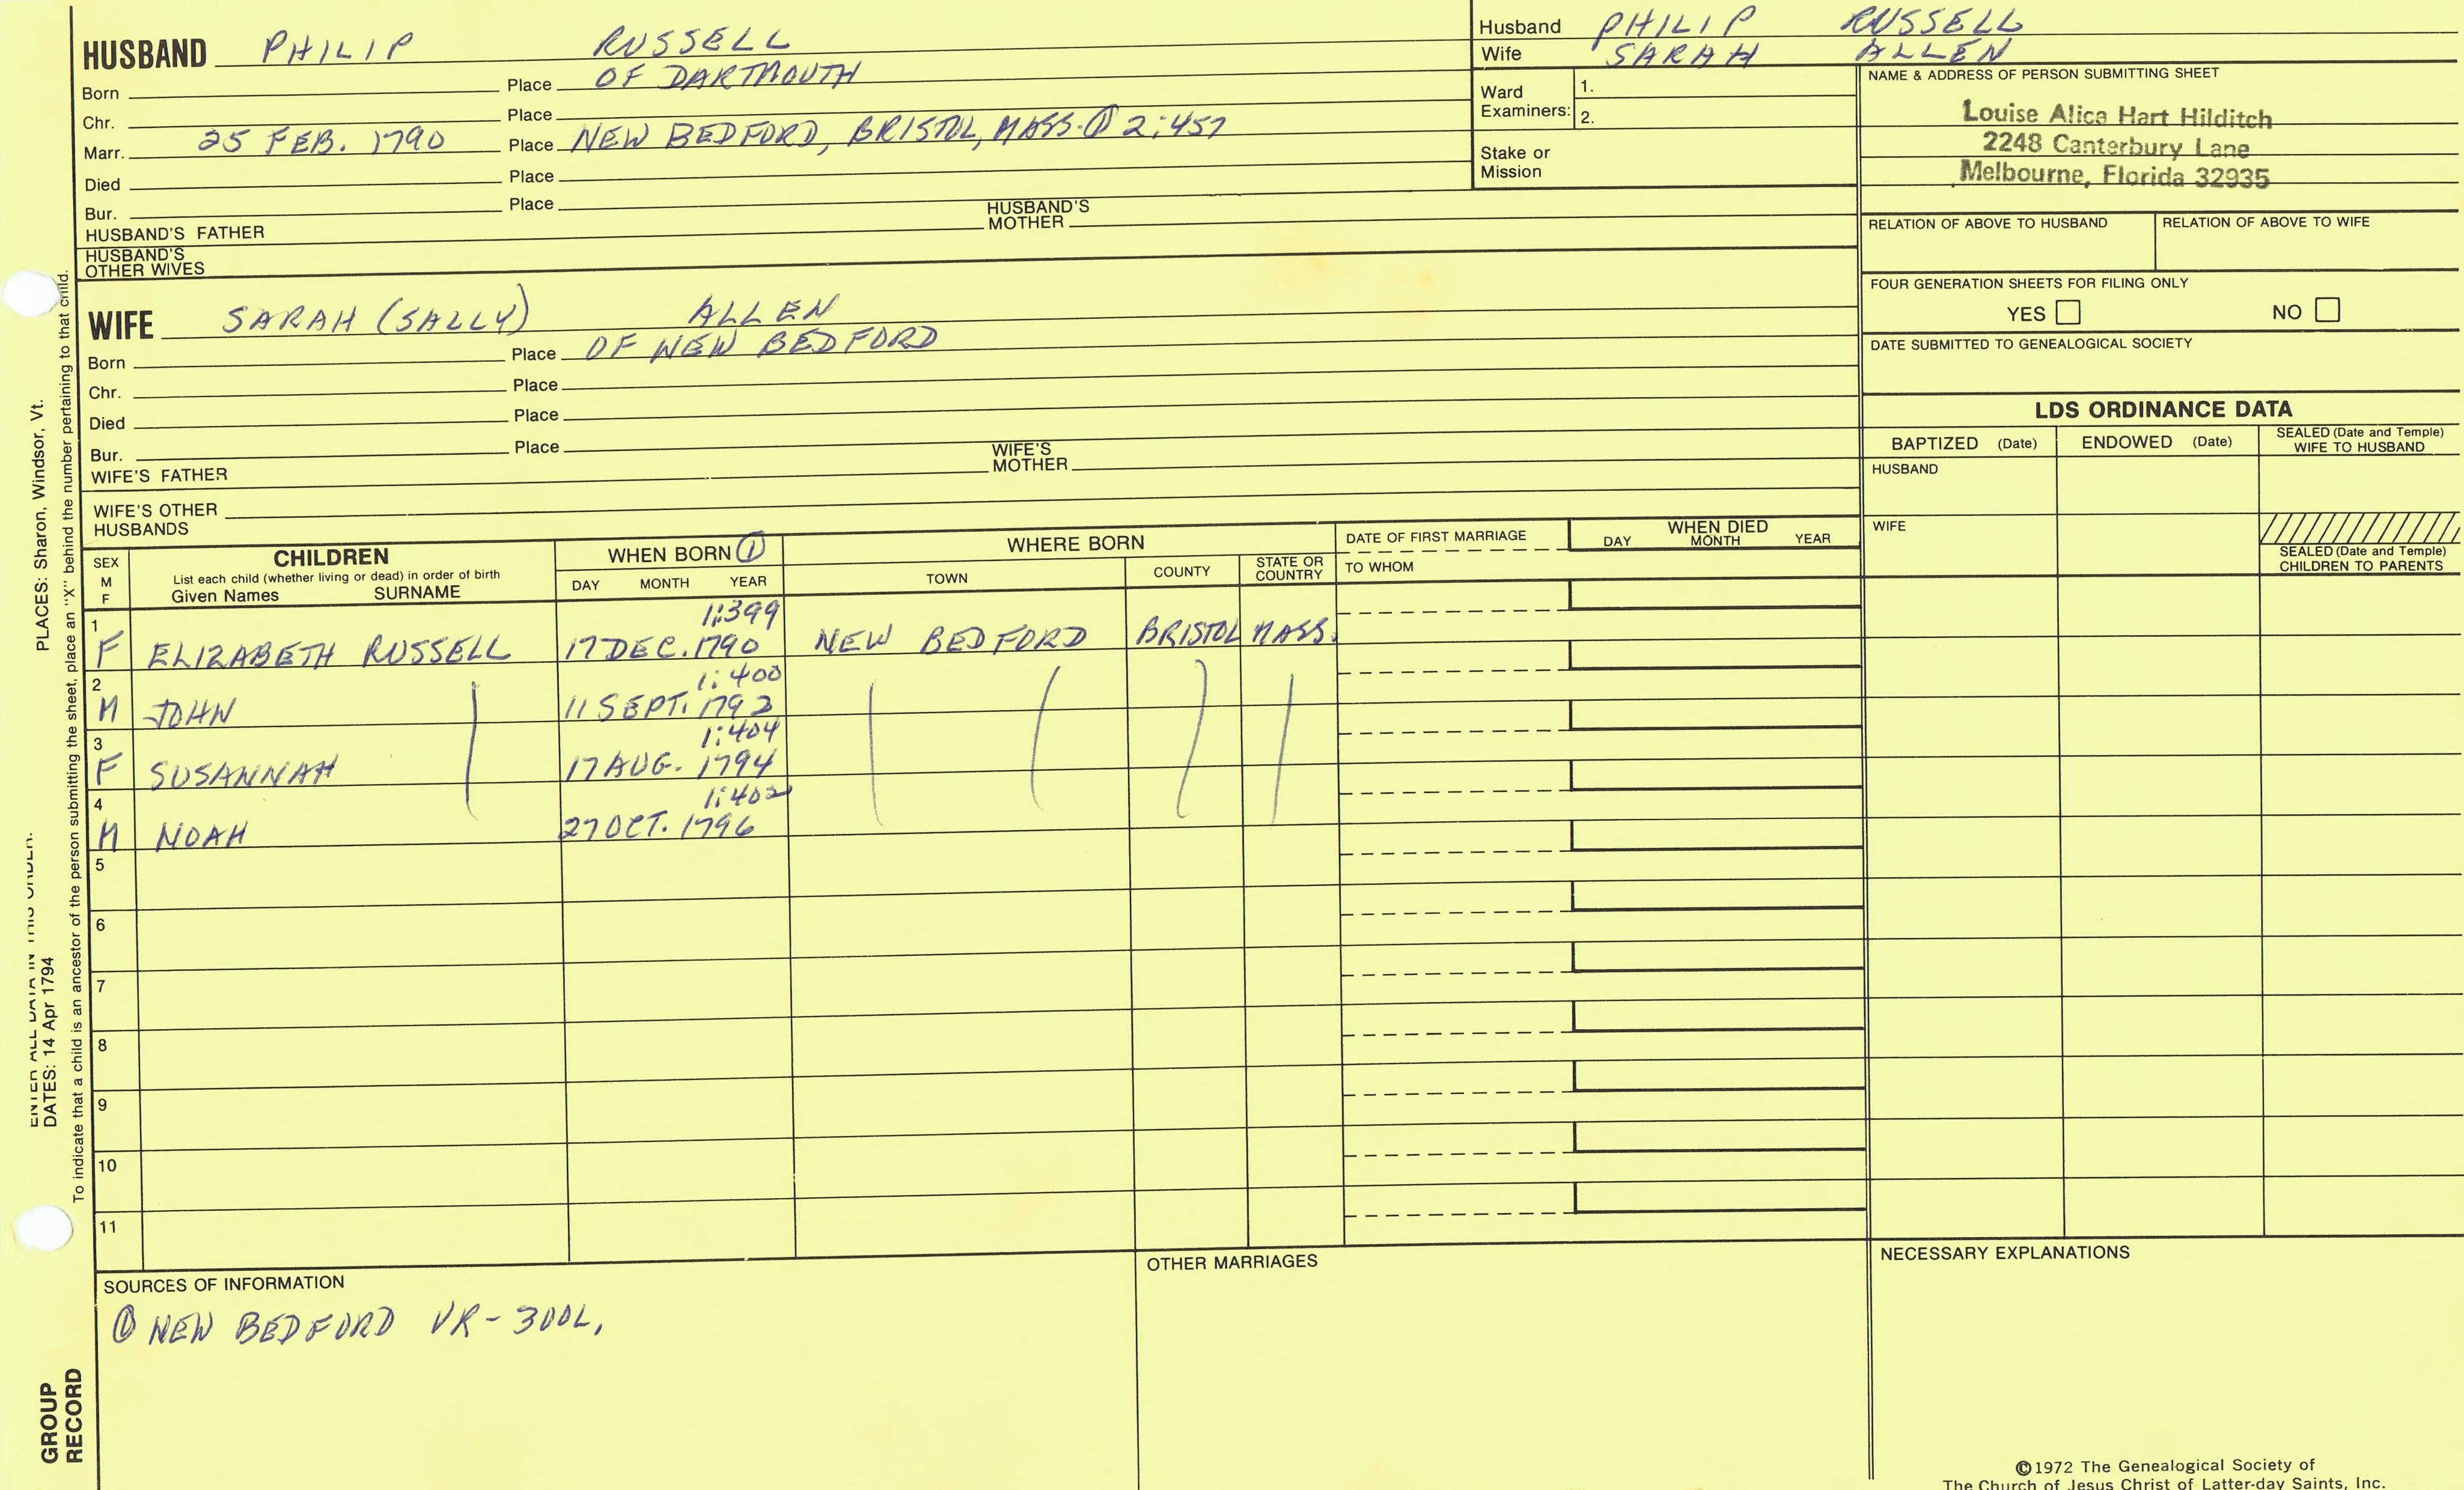 HUSBAND PHILIP RUSSELL
Born Place OF DARTMOUTH
Chr. Place
Marr. 25 FEB. 1790 Place NEW BEDFORD, BRISTOL, MASS. ① 2:457
Died Place
Bur. Place
HUSBAND'S FATHER HUSBAND'S MOTHER
HUSBAND'S OTHER WIVES
Husband PHILIP RUSSELL
Wife SARAH ALLEN
Ward Examiners: 1.
2.
Stake or Mission
NAME & ADDRESS OF PERSON SUBMITTING SHEET
Louise Alice Hart Hilditch
2248 Canterbury Lane
Melbourne, Florida 32935
RELATION OF ABOVE TO HUSBAND RELATION OF ABOVE TO WIFE
FOUR GENERATION SHEETS FOR FILING ONLY
YES NO
DATE SUBMITTED TO GENEALOGICAL SOCIETY
WIFE SARAH (SALLY) ALLEN
Born Place OF NEW BEDFORD
Chr. Place
Died Place
Bur. Place
WIFE'S FATHER WIFE'S MOTHER
WIFE'S OTHER HUSBANDS
LDS ORDINANCE DATA
BAPTIZED (Date) ENDOWED (Date) SEALED (Date and Temple) WIFE TO HUSBAND
HUSBAND
WIFE
SEALED (Date and Temple) CHILDREN TO PARENTS
SEX M F
CHILDREN
List each child (whether living or dead) in order of birth
Given Names SURNAME
WHEN BORN ①
DAY MONTH YEAR
WHERE BORN
TOWN COUNTY STATE OR COUNTRY
DATE OF FIRST MARRIAGE
TO WHOM
WHEN DIED
DAY MONTH YEAR
1:399
1 F ELIZABETH RUSSELL 17 DEC. 1790 NEW BEDFORD BRISTOL MASS.
1:400
2 M JOHN 11 SEPT. 1792
1:404
3 F SUSANNAH 17 AUG. 1794
1:402
4 M NOAH 27 OCT. 1796
5
6
7
8
9
10
11
SOURCES OF INFORMATION
① NEW BEDFORD VR - 300L,
OTHER MARRIAGES
NECESSARY EXPLANATIONS
©1972 The Genealogical Society of
The Church of Jesus Christ of Latter-day Saints, Inc.
ENTER ALL DATA IN THIS ORDER:
DATES: 14 Apr 1794
PLACES: Sharon, Windsor, Vt.
To indicate that a child is an ancestor of the person submitting the sheet, place an "X" behind the number pertaining to that child.
GROUP
RECORD